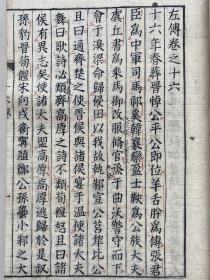 左傳卷之十六
十六年春葬晉悼公平公即位羊舌肸為傅張君
臣為中軍司馬祁奚韓襄欒盈士鞅為公族大夫
虞丘書為乘馬御改服脩官烝于曲沃警守而下
會于溴梁命歸侵田以我故執邾宣公莒犁比公
且曰通齊楚之使晉侯與諸侯宴于溫使諸大夫
舞曰歌詩必類齊高厚之詩不類荀偃怒且曰諸
侯有異志矣使諸大夫盟高厚高厚逃歸於是叔
孫豹晉荀偃宋向戌衛甯殖鄭公孫蠆小邾之大